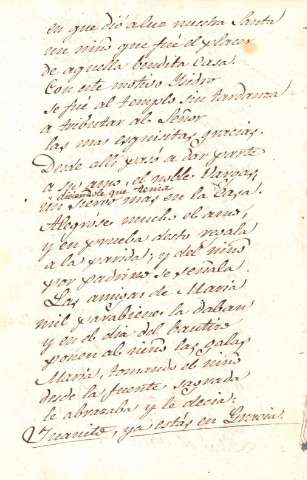 en que dió a luz nuestra Santa
un niño que fué el placer
de aquella bendita Casa.
Con este motivo Ysidro
se fué al templo sin tardanza
a tributar al Señor
las mas esquisitas gracias.
Desde allí pasó a dar parte
a su amo, el noble Vargas,
diciendole que tenia
un siervo mas en la Casa.
Alegróse mucho el amo,
y en prueba desto regala
a la parida; y del niño
por padrino se señala.
Las amigas de Maria
mil parabienes la daban
y en el dia del bautizo
ponen al niño las galas
Maria, tomando el niño
desde la fuente sagrada
le abrazaba y le decia:
Juanito, ya estás en Gracia.